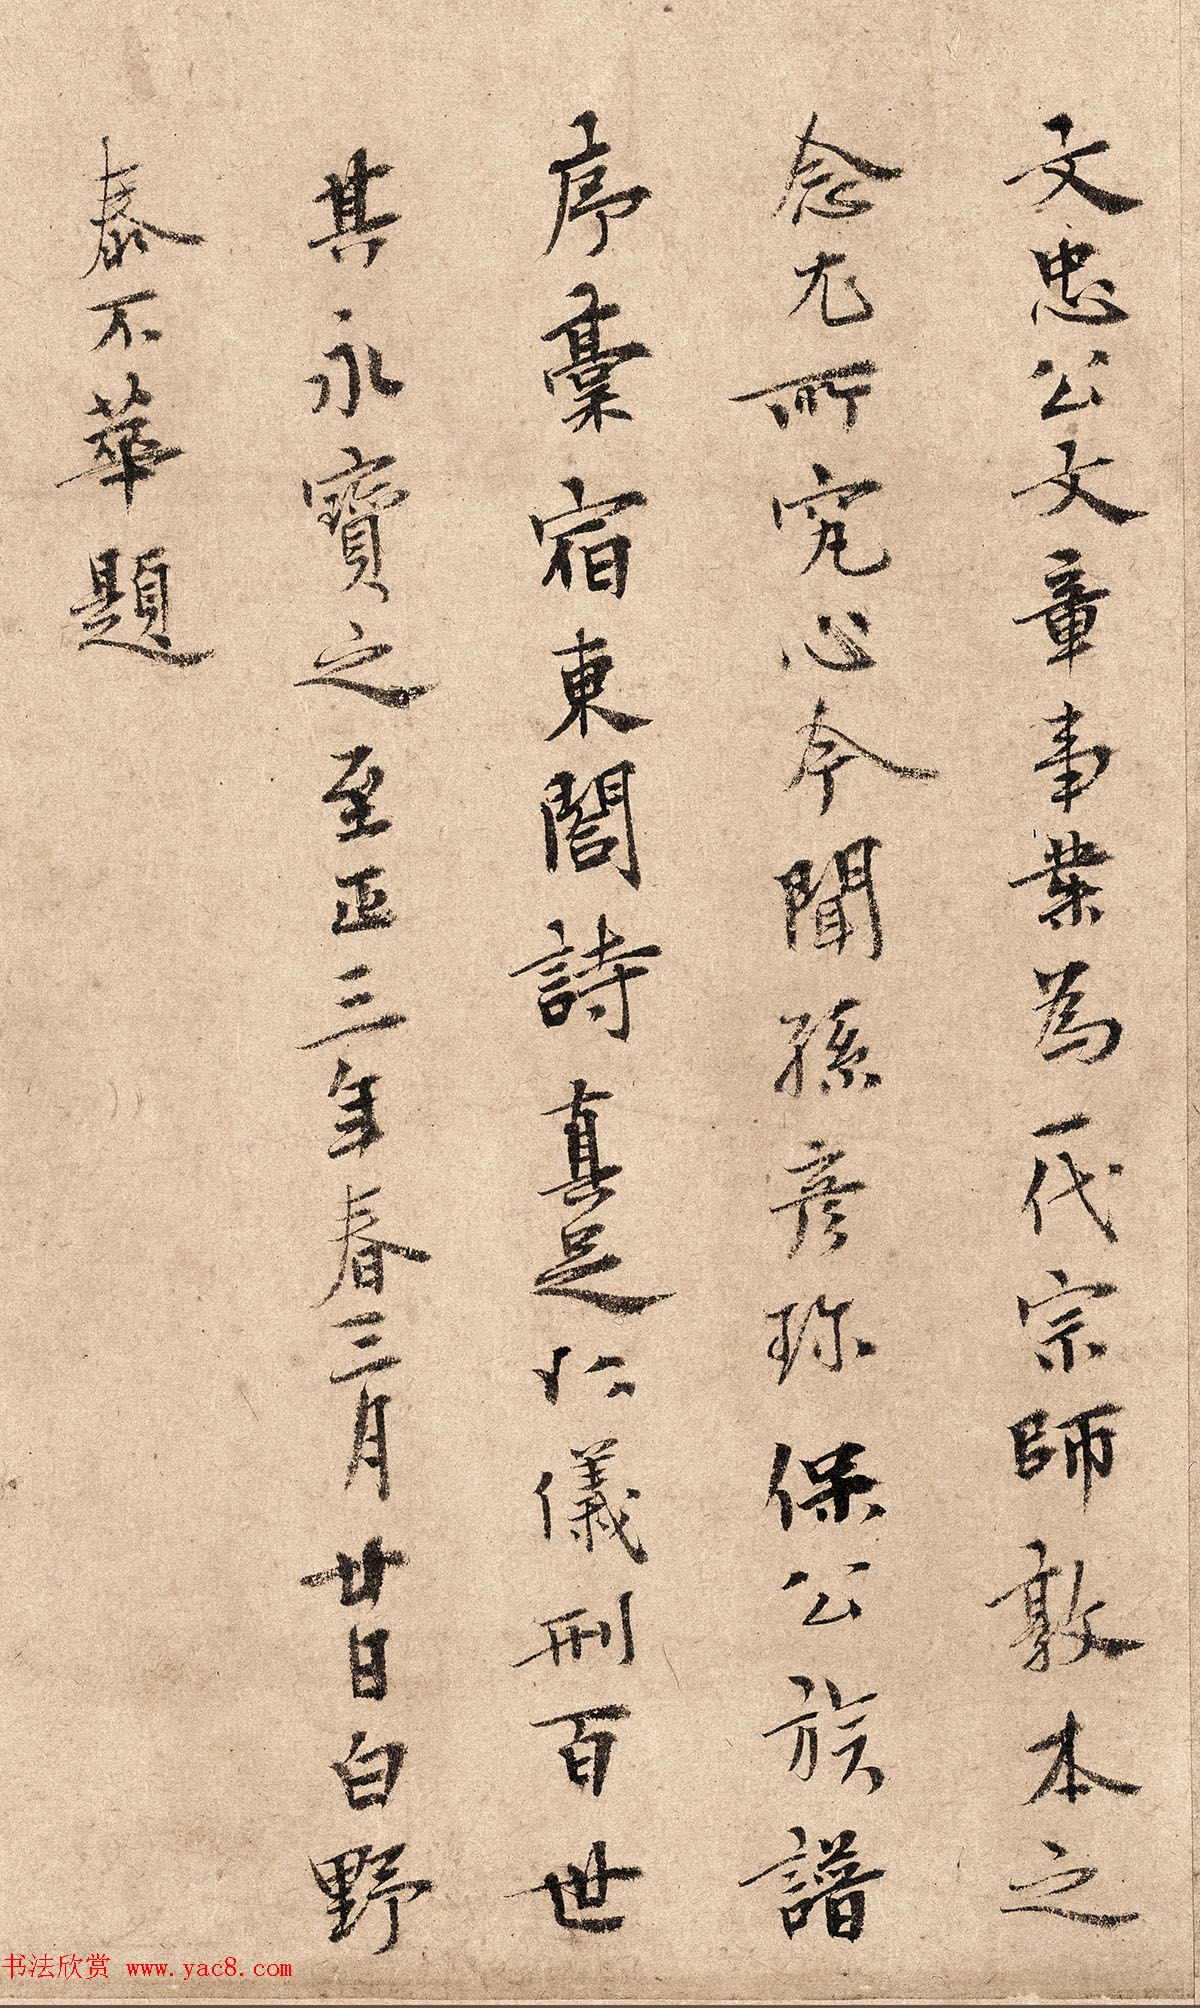 文忠公文章事業為一代宗師敦本之
念尤所究心今聞孫彦珍保公族譜
序藁宿東閤詩真足以儀刑百世
其永寶之至正三年春三月廿日白野
泰不華題
书法欣赏 www.yac8.com